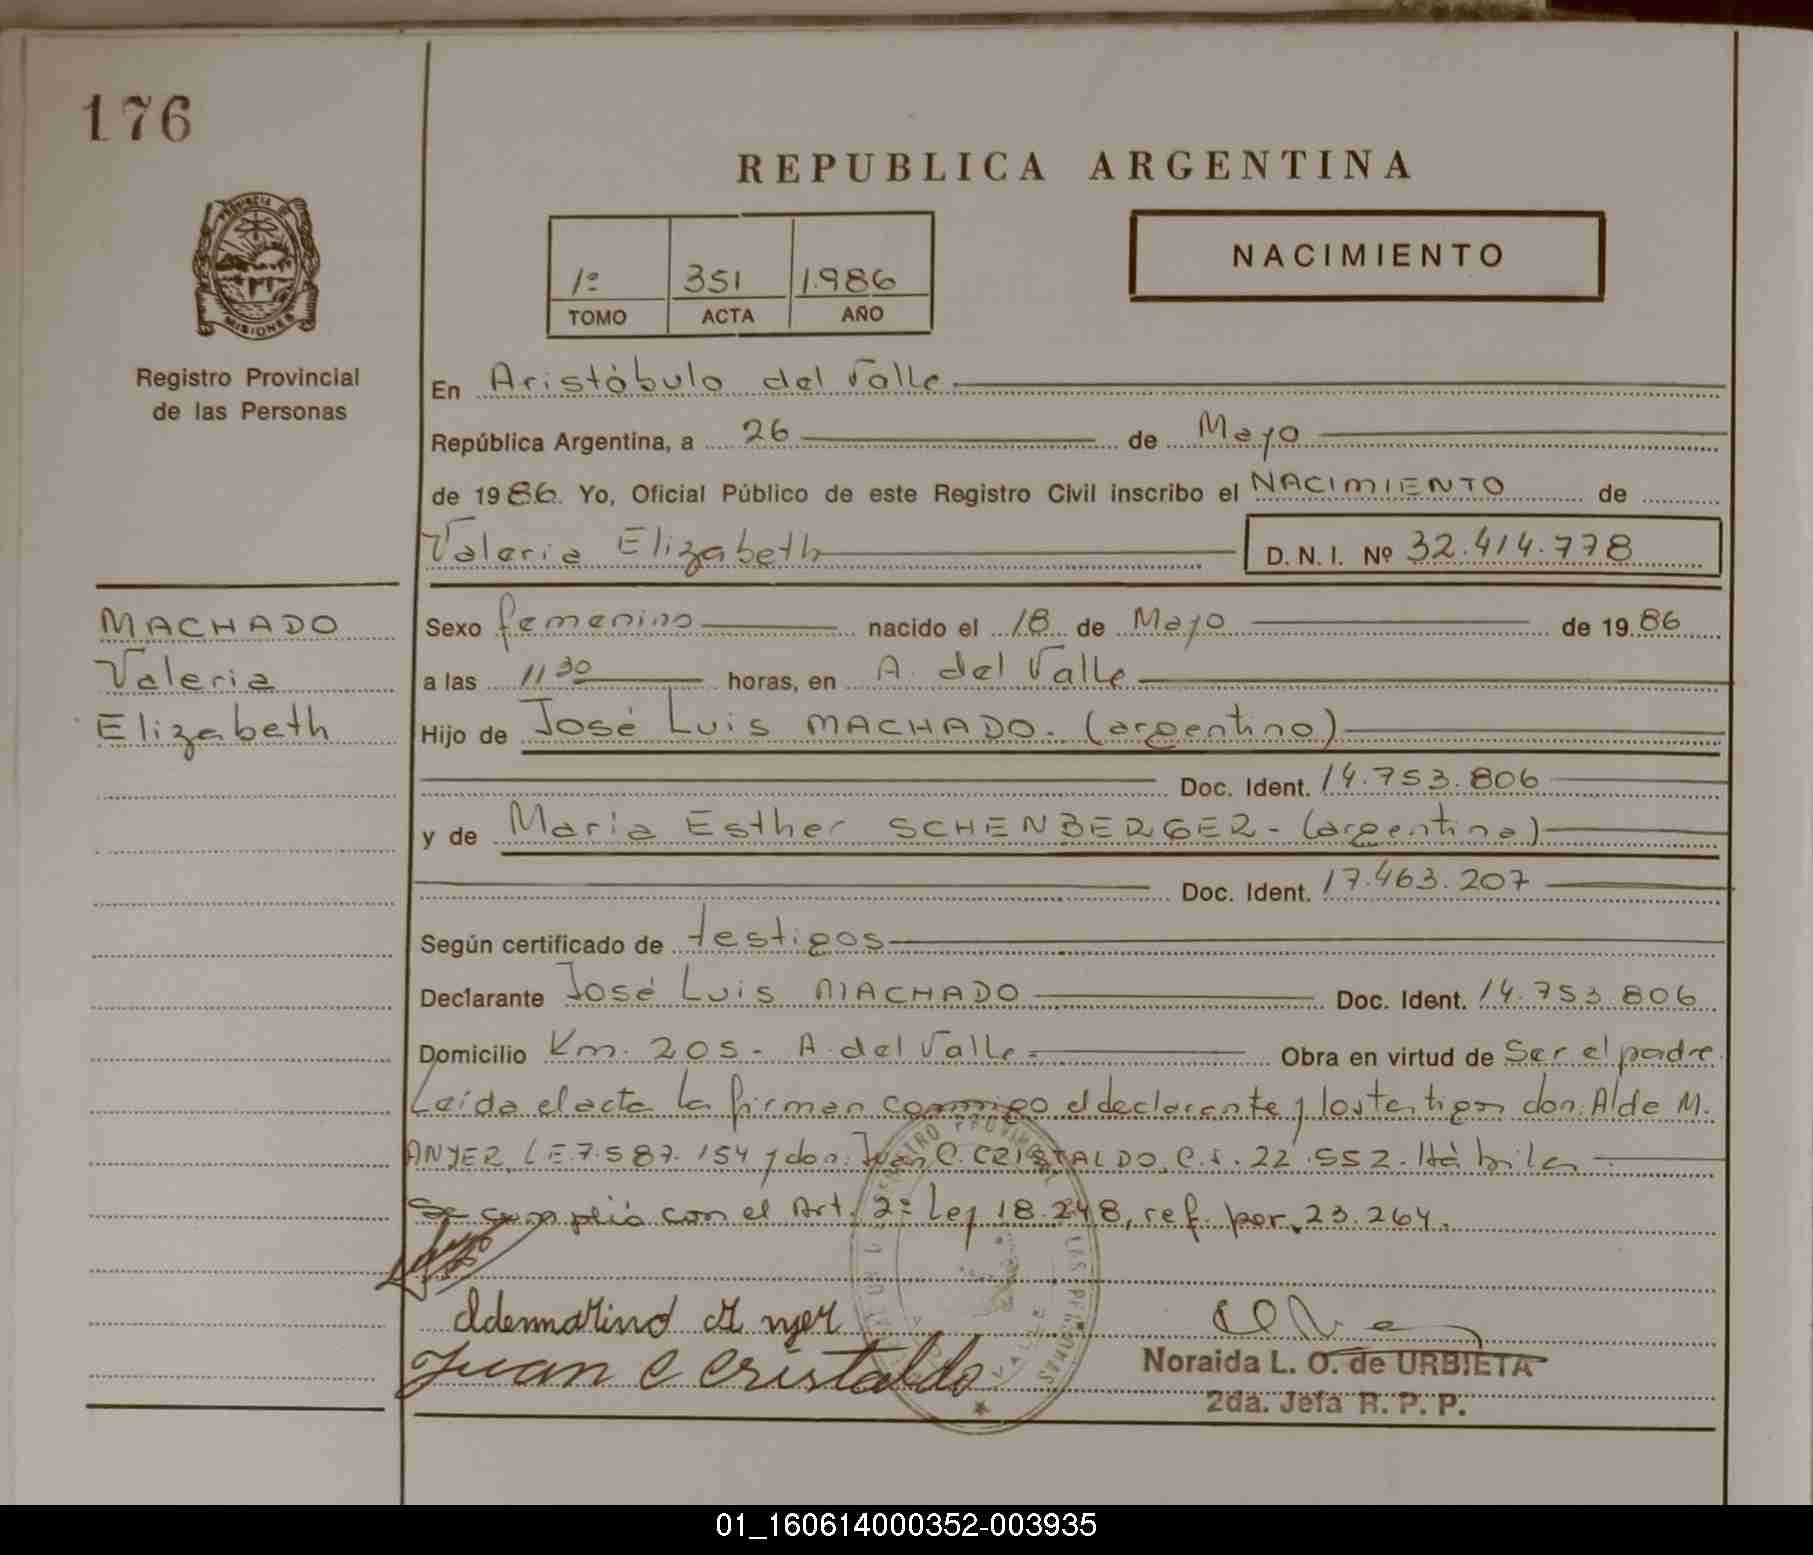 176
REPUBLICA ARGENTINA
PROVINCIA DE
MISIONES
Registro Provincial
de las Personas
1º 351 1.986
TOMO ACTA AÑO
NACIMIENTO
En Aristóbulo del Valle
República Argentina, a 26 de Mayo
de 1986. Yo, Oficial Público de este Registro Civil inscribo el NACIMIENTO de
Valeria Elizabeth D. N. I. Nº 32.414.778
MACHADO
Valeria
Elizabeth
Sexo femenino nacido el 18 de Mayo de 1986
a las 11 30 horas, en A. del Valle
Hijo de José Luis MACHADO. (argentino)
Doc. Ident. 14.753.806
y de María Esther SCHENBERGER - (argentina)
Doc. Ident. 17.463.207
Según certificado de testigos
Declarante José Luis MACHADO Doc. Ident. 14.753.806
Domicilio Km. 205 - A. del Valle - Obra en virtud de Ser el padre
Leída el acta la firman conmigo el declarante y los testigos don: Alde M.
ANYER, LE. 7.587.154 y don: Juan C. CRISTALDO, C.I. 22.552. Hábiles
Se cumplió con el Art. 2º Ley 18.248, ref. por 23.264.
Juan C Cristaldo
Noraida L. O. de URBIETA
2da. Jefa R. P. P.
01_160614000352-003935